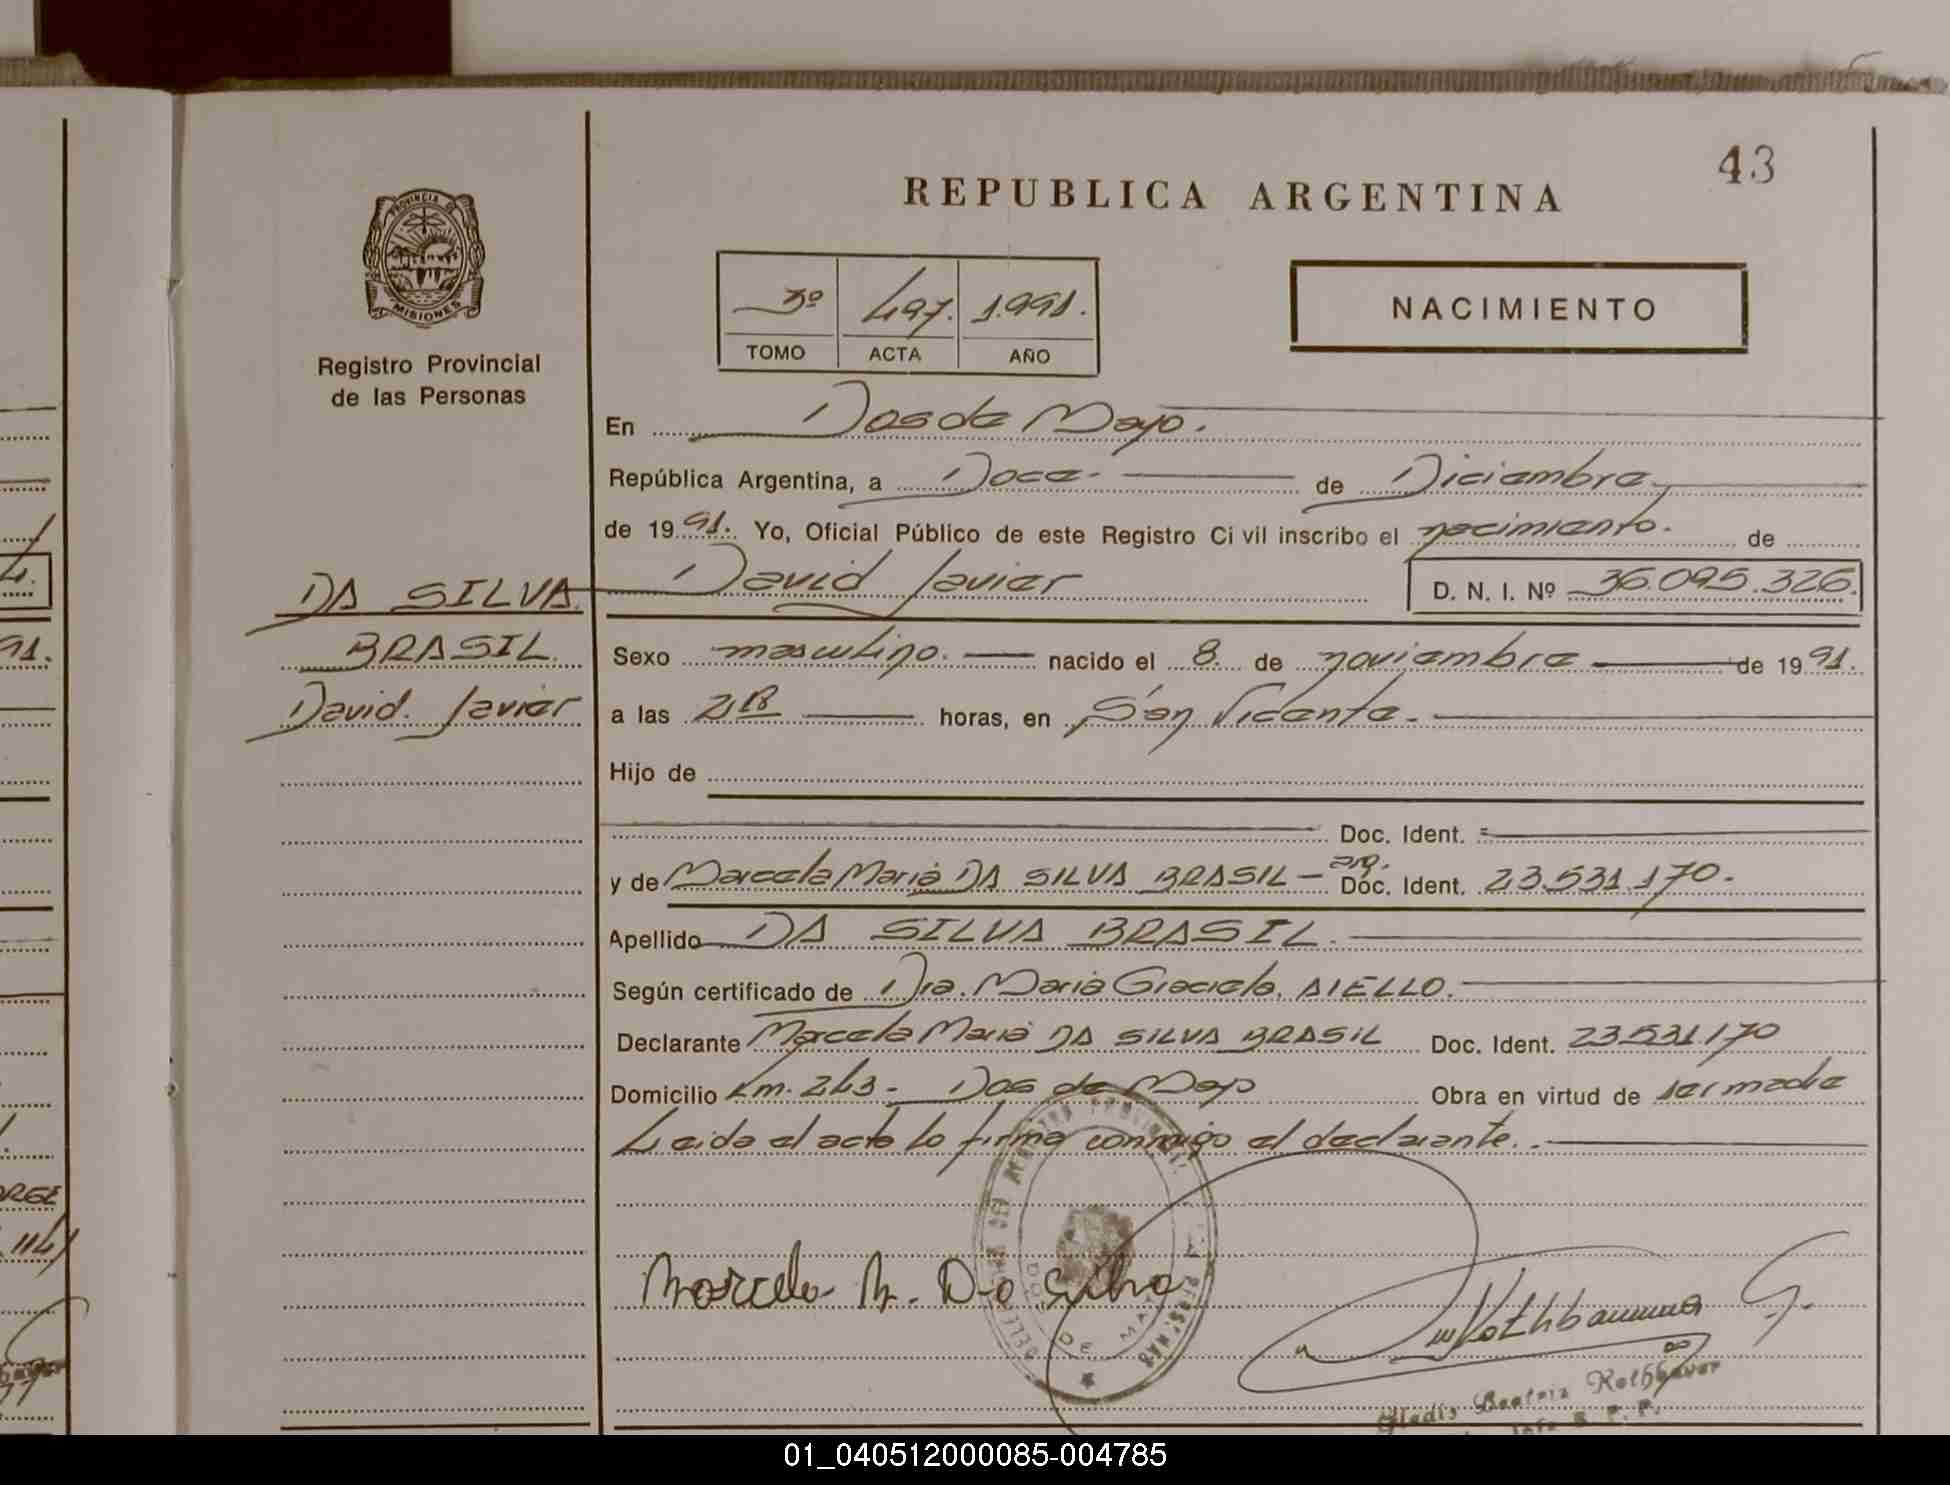 43
REPUBLICA ARGENTINA
PROVINCIA DE
MISIONES
Registro Provincial
de las Personas
3º 497. 1.991.
TOMO ACTA AÑO
NACIMIENTO
En Dos de Mayo.
República Argentina, a Doce- de Diciembre
de 19 91. Yo, Oficial Público de este Registro Civil inscribo el nacimiento. de
DA SILVA David Javier D. N. I. Nº 36.095.326.
BRASIL.
David. Javier
Sexo masculino. nacido el 8. de noviembre de 19 91.
a las horas, en San Vicente.
Hijo de
Doc. Ident.
arg.
y de Marcela Maria DA SILVA BRASIL - Doc. Ident. 23.531.170.
Apellido DA SILVA BRASIL.
Según certificado de Dra. Maria Graciela. AIELLO.
Declarante Marcela Maria DA SILVA BRASIL Doc. Ident. 23.531.170
Domicilio Km. 243- Dos de Mayo Obra en virtud de ser madre
Leida el acta lo firma conmigo el declarante.
Marcela M. Da Silva
DOS DE MAYO
Rothbauer G.
Gladis Beatriz Rothbauer
01_040512000085-004785